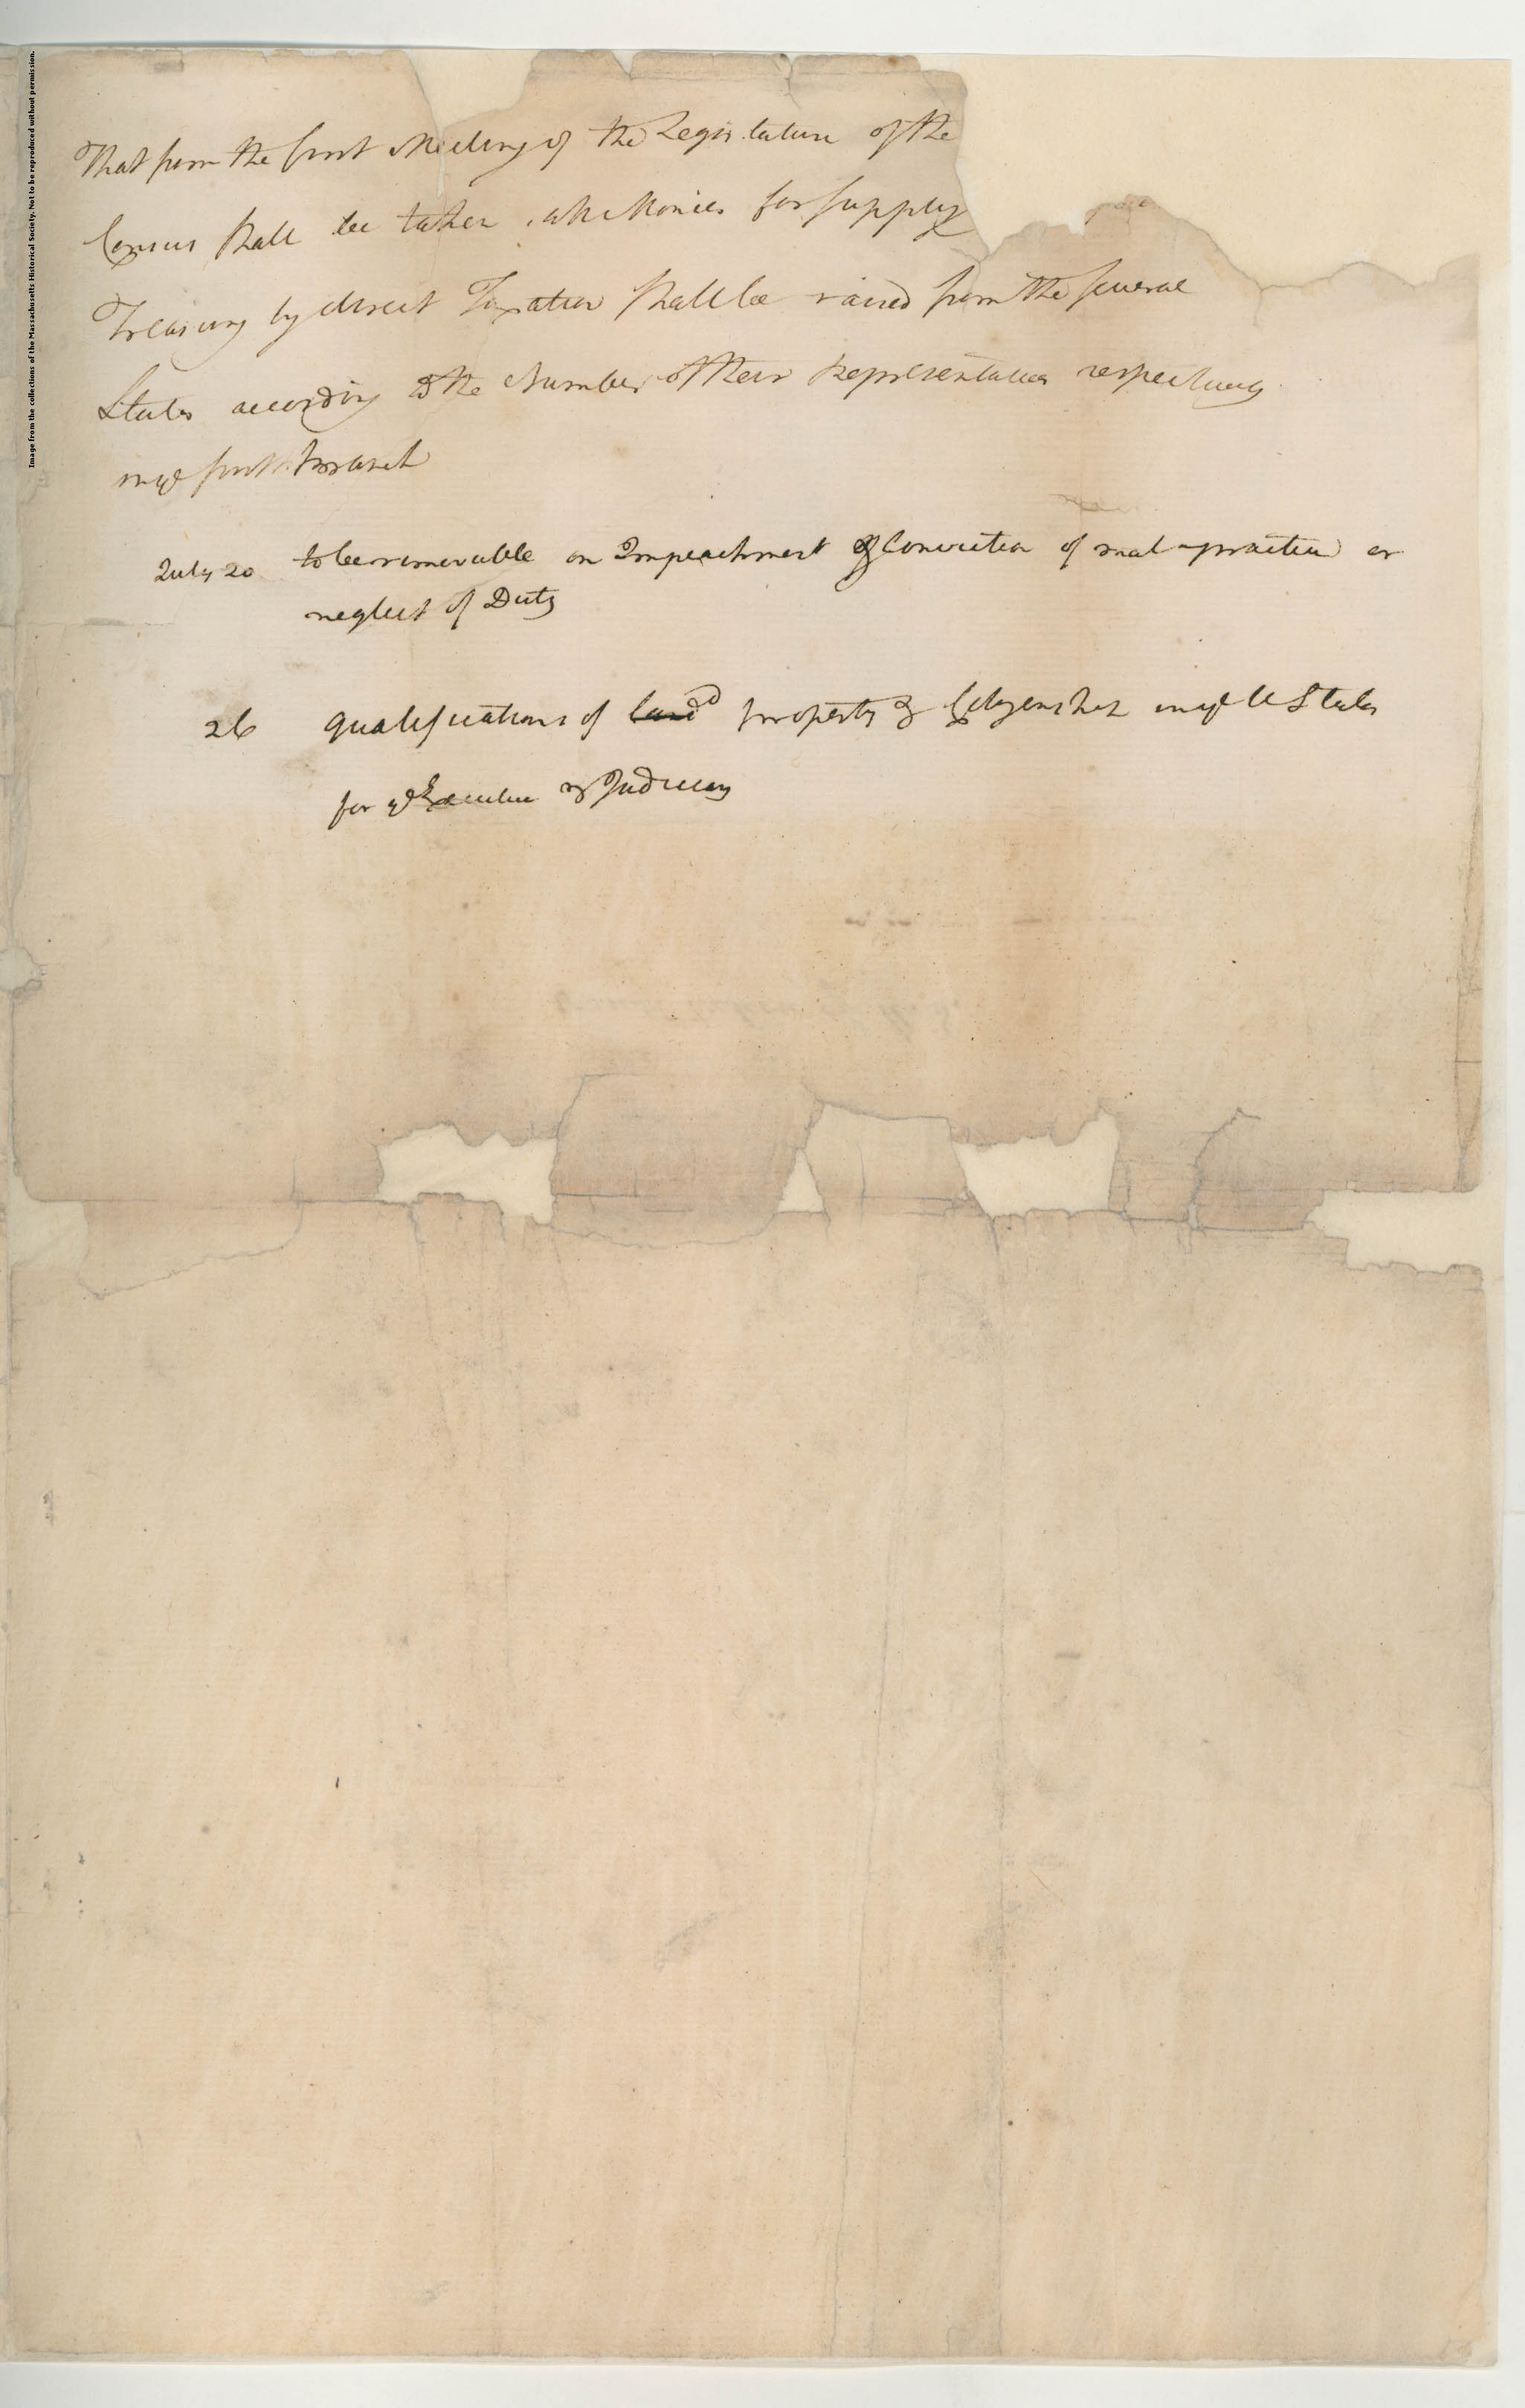 Image from the collections of the Massachusetts Historical Society. Not to be reproduced without permission.
That from the first Meeting of the Legislature of the
Census shall be taken all Monies for supply
Treasury by direct Taxation shall be raised from the several
States according to the Number of their Representatives respectively
in ye first Branch
July 20 to be removable on Impeachment & Conviction of mal-practice or
neglect of Duty
26 qualifications of land property & Citizenship in ye U States
for ye Executive & Judiciary